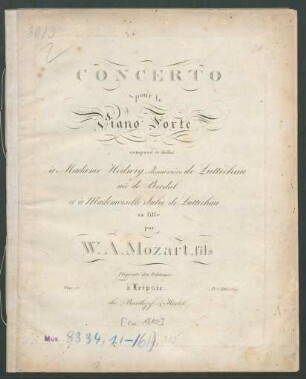 3013
CONCERTO
pour le
Piano Forte
composé et dedié
à Madame Hedwig de Lutterheim
née de Bredal
et à Mademoiselle Julie de Luttichau
sa fille
par
W. A. Mozart, fils
Propriété des Editeurs
à Leipsic
chez Breitkopf & Härtel
Mus. 8334, 21-16